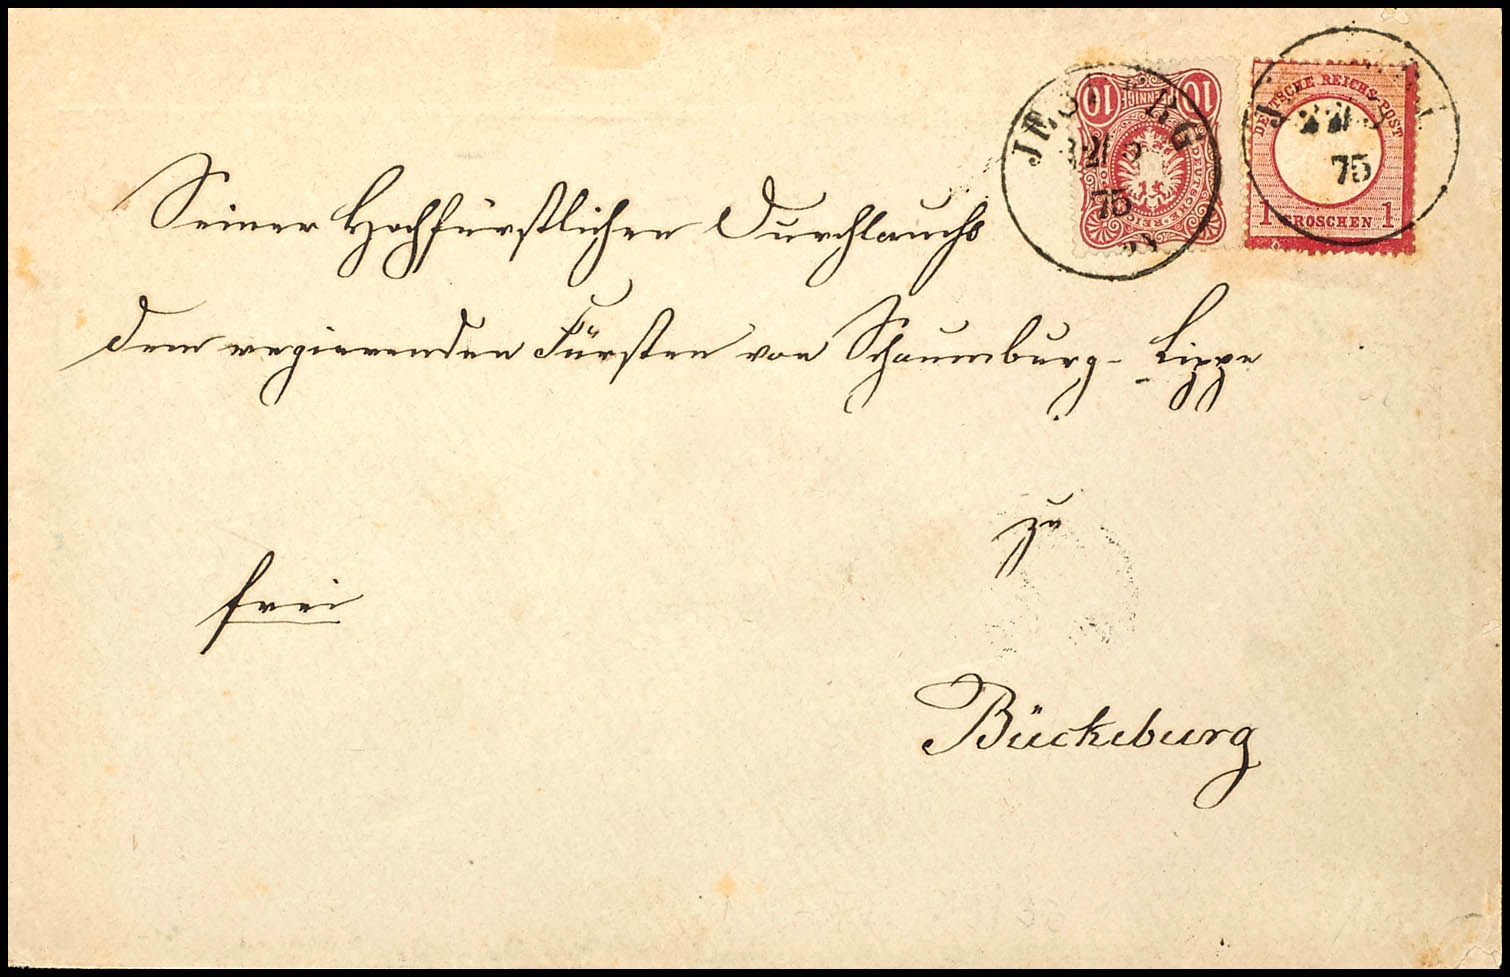 10 PFENNIGE 10
DEUTSCHE
75
DEUTSCHE REICHS-POST
75
1 GROSCHEN 1
Seiner Hochfürstlichen Durchlaucht
dem regierenden Fürsten von Schaumburg-Lippe
zu
frei
Bückeburg